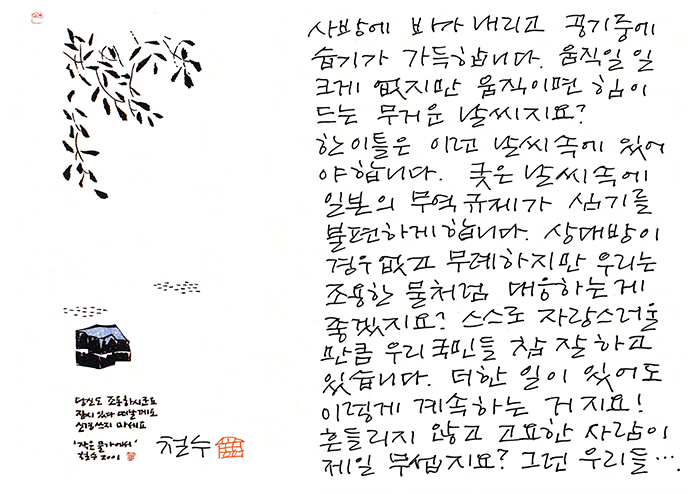 당신도 조용하시군요
잠시 있다 떠날게요
신경쓰지 마세요
'작은 물가에서'
철수 2001
철수
사방에 비가 내리고 공기중에
습기가 가득합니다. 움직일 일
크게 없지만 움직이면 힘이
드는 무거운 날씨지요?
한이틀은 이런 날씨속에 있어
야합니다. 궂은 날씨속에
일본의 무역규제가 심기를
불편하게합니다. 상대방이
경우없고 무례하지만 우리는
조용한 물처럼 대응하는게
좋겠지요? 스스로 자랑스러울
만큼 우리국민들 참 잘하고
있습니다. 더한 일이 있어도
이렇게 계속하는 거지요!
흔들리지 않고 고요한 사람이
제일 무섭지요? 그런 우리들….